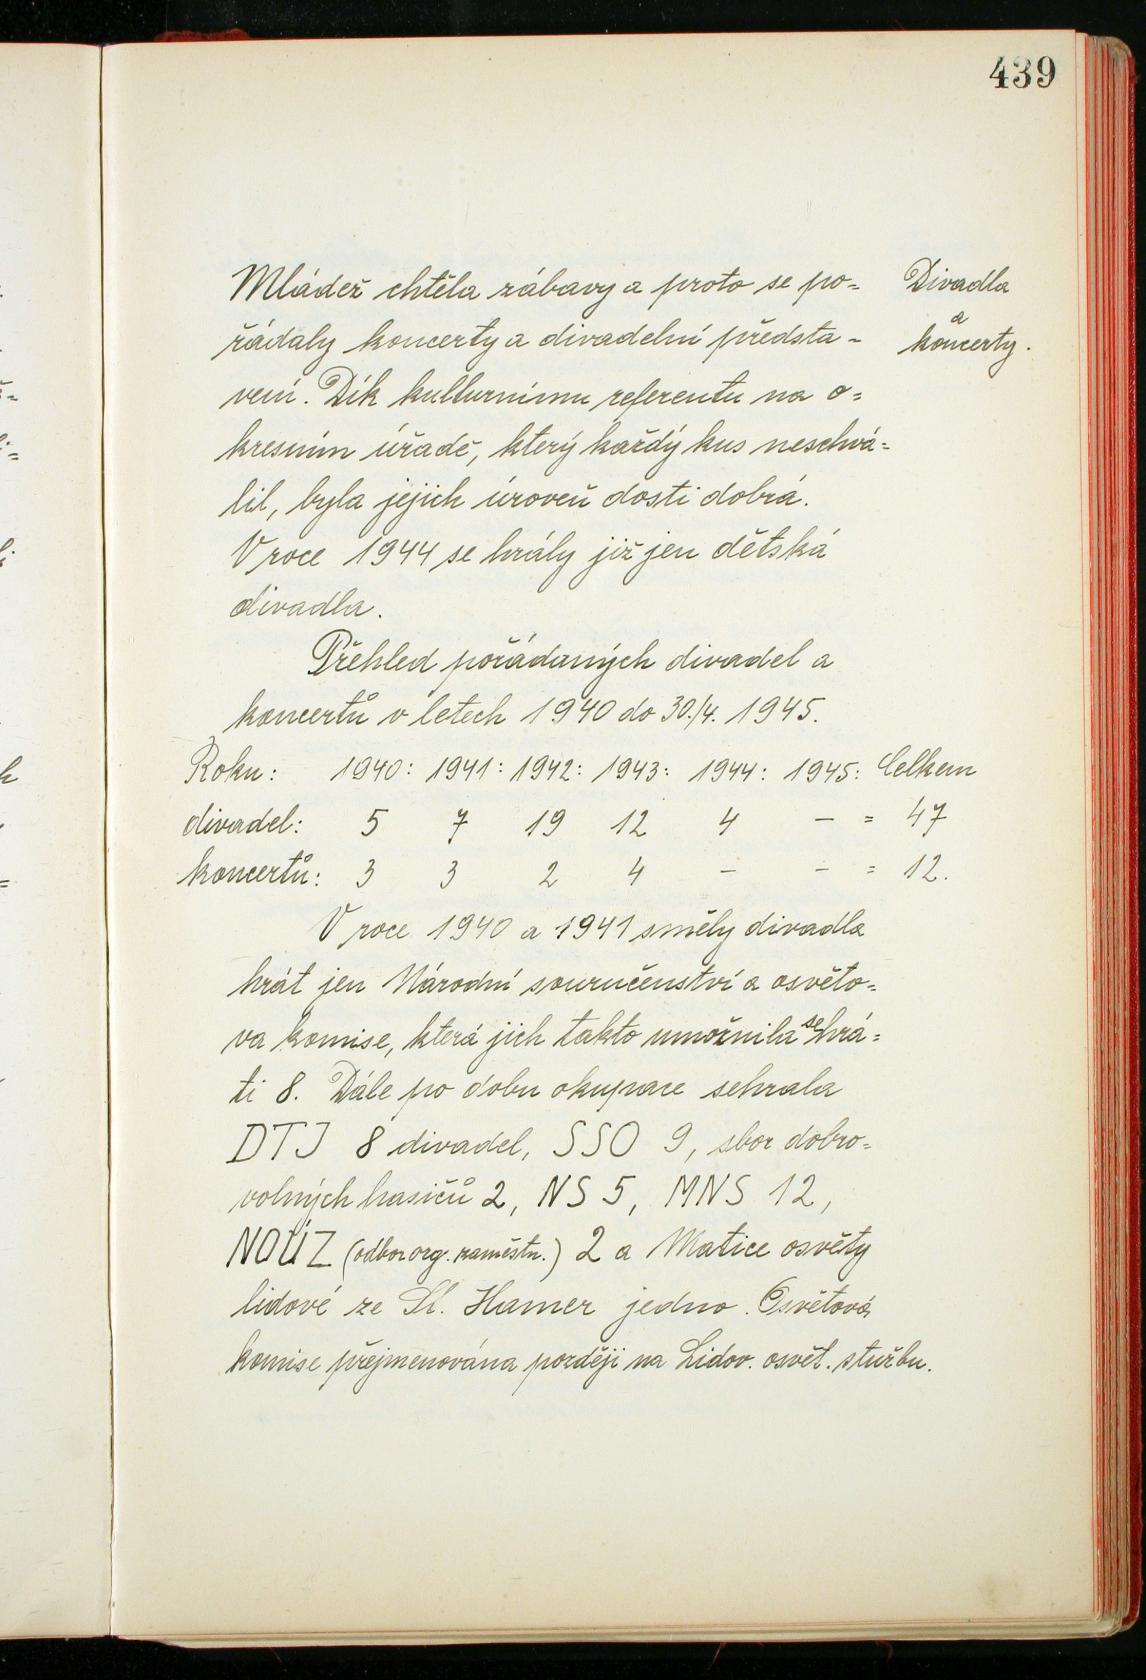 439
Mládež chtěla zábavy a proto se po=
řádaly koncerty a divadelní představ-
vení. Dík kulturnímu referentu na o=
kresním úřadě, který každý kus neschvá=
lil, byla jejich úroveň dosti dobrá.
V roce 1944 se hrály již jen dětská
divadla.
Divadla
a
koncerty.
Přehled pořádaných divadel a
koncertů v letech 1940 do 30./4. 1945.
Roku: 1940: 1941: 1942: 1943: 1944: 1945: Celkem
divadel: 5 7 19 12 4 – = 47
koncertů: 3 3 2 4 – – = 12.
V roce 1940 a 1941 směly divadla
hrát jen Národní souručenství a osvěto=
va komise, která jich takto umožnila sehrá=
ti 8. Dále po dobu okupace sehrala
DTJ 8 divadel, SSO 9, sbor dobro=
volných hasičů 2, NS 5, MNS 12,
NOÚZ (odbor org. zaměstn.) 2 a Matice osvěty
lidové ze Sl. Hamer jedno. Osvětová
komise přejmenována později na Lidov. osvět. službu.